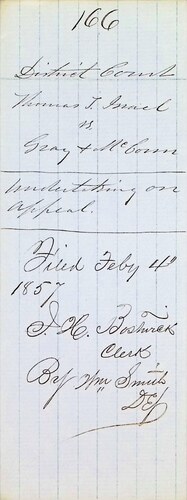 166
District Court
Thomas T. Israel
vs.
Gray & McCown
Undertaking on
Appeal.
Filed Feby 4th
1857
J. H. Bostwick
Clerk
By Wm Smith
Dy